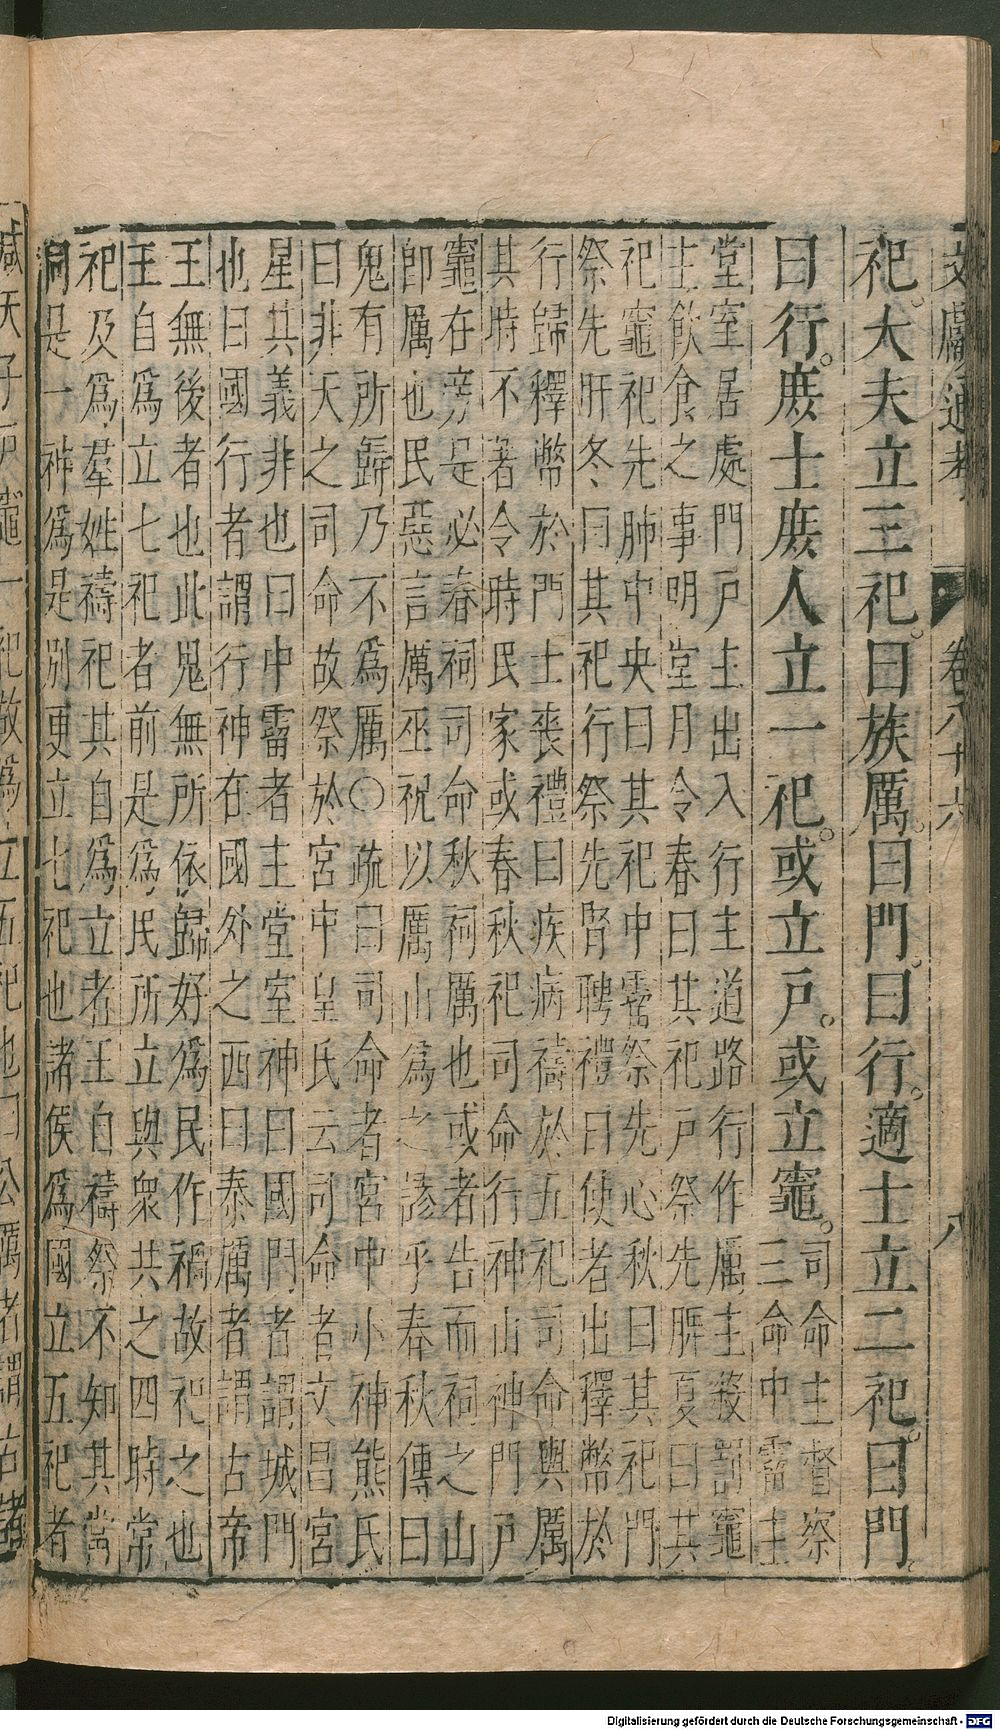 文獻通考　卷八十六　八
祀。大夫立三祀。曰族厲。曰門。曰行。適士立二祀。曰門。
曰行。庶士庶人立一祀。或立戶。或立竈。
司命主督察
三命中霤主
堂室居處門戶主出入行主道路行作厲主殺罰竈
主飲食之事明堂月令春曰其祀戶祭先脾夏曰其
祀竈祀先肺中央曰其祀中霤祭先心秋曰其祀門
祭先肝冬曰其祀行祭先腎聘禮曰使者出釋幣於
行歸釋幣於門士喪禮曰疾病禱於五祀司命與厲
其時不著今時民家或春秋祀司命行神山神門戶
竈在旁是必春祠司命秋祠厲也或者告而祠之山
即厲也民惡言厲巫祝以厲山爲之謬乎春秋傳曰
鬼有所歸乃不爲厲○疏曰司命者宮中小神熊氏
曰非天之司命故祭於宮中皇氏云司命者文昌宮
星其義非也曰中霤者主堂室神曰國門者謂城門
也曰國行者謂行神在國外之西曰泰厲者謂古帝
王無後者也此鬼無所依歸好爲民作禍故祀之也
王自爲立七祀者前是爲民所立與衆共之四時常
祀及爲羣姓禱祀其自爲立者王自禱祭不知其當
同是一神爲是別更立七祀也諸侯爲國立五祀者
減天子戶竈二祀故爲立五祀也曰公厲者謂古諸
Digitalisierung gefördert durch die Deutsche Forschungsgemeinschaft - DFG